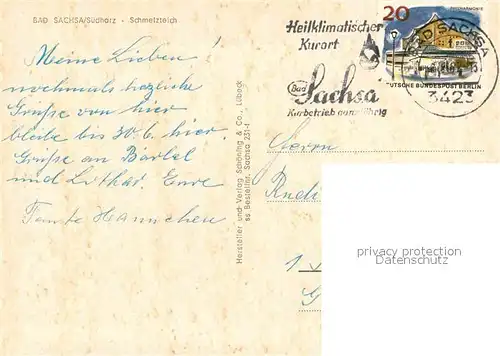 BAD SACHSA/Südharz - Schmelzteich
Meine Lieben!
nochmals herzliche
Grüße von hier
bleibe bis 30.6. hier
Grüße an Bärbel
und Lothar. Eure
Tante Hannchen
Hersteller und Verlag Schöning & Co., Lübeck
Bestellnr. Sachsa 231-f
Heilklimatischer
Kurort
Bad
Sachsa
Kurbetrieb ganzjährig
20
PHILHARMONIE
DEUTSCHE BUNDESPOST BERLIN
BAD SACHSA
3423
Herrn
Rudi
privacy protection
Datenschutz